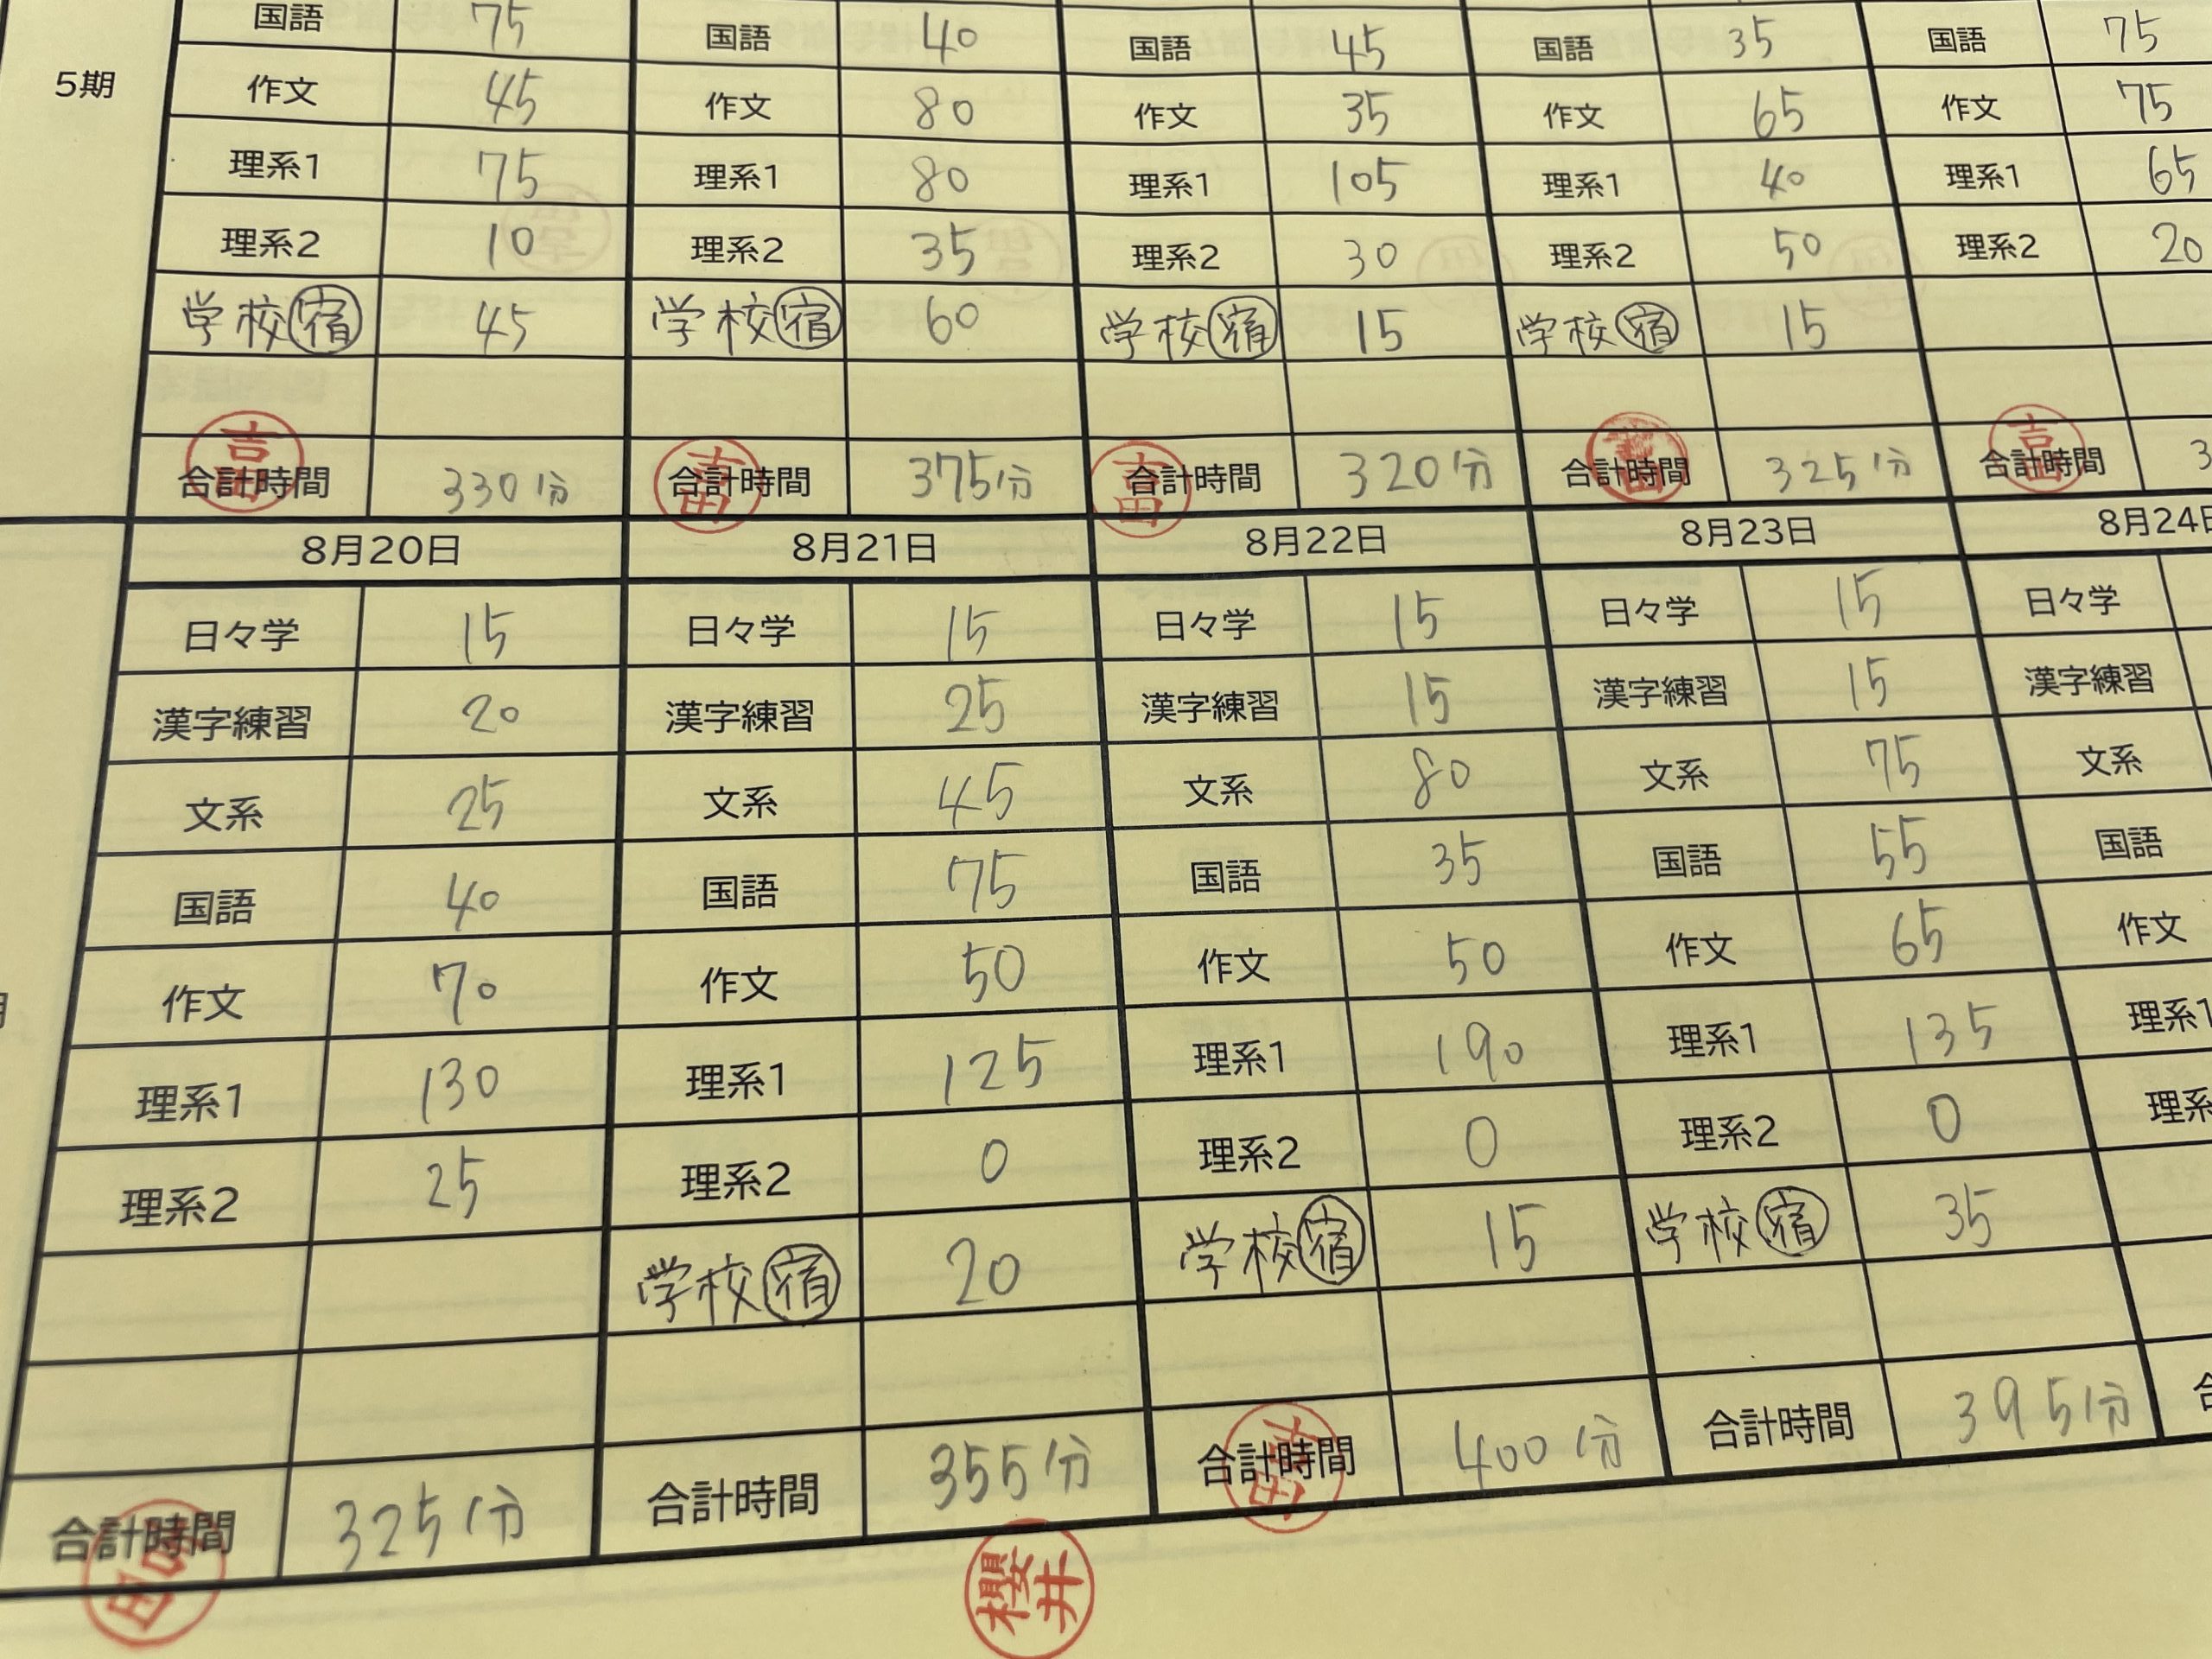 国語 75 国語 40 国語 45 国語 35 国語 75
5期 作文 45 作文 80 作文 35 作文 65 作文 75
理系1 75 理系1 80 理系1 105 理系1 40 理系1 65
理系2 10 理系2 35 理系2 30 理系2 50 理系2 20
学校宿 45 学校宿 60 学校宿 15 学校宿 15
合計時間 330分 合計時間 375分 合計時間 320分 合計時間 325分 合計時間 3
吉田 吉田 吉田 吉田
8月20日 8月21日 8月22日 8月23日 8月24日
日々学 15 日々学 15 日々学 15 日々学 15 日々学
漢字練習 20 漢字練習 25 漢字練習 15 漢字練習 15 漢字練習
文系 25 文系 45 文系 80 文系 75 文系
国語 40 国語 75 国語 35 国語 55 国語
作文 70 作文 50 作文 50 作文 65 作文
理系1 130 理系1 125 理系1 190 理系1 135 理系1
理系2 25 理系2 0 理系2 0 理系2 0 理系
学校宿 20 学校宿 15 学校宿 35
合計時間 325分 合計時間 355分 合計時間 400分 合計時間 395分 合
吉田 櫻井